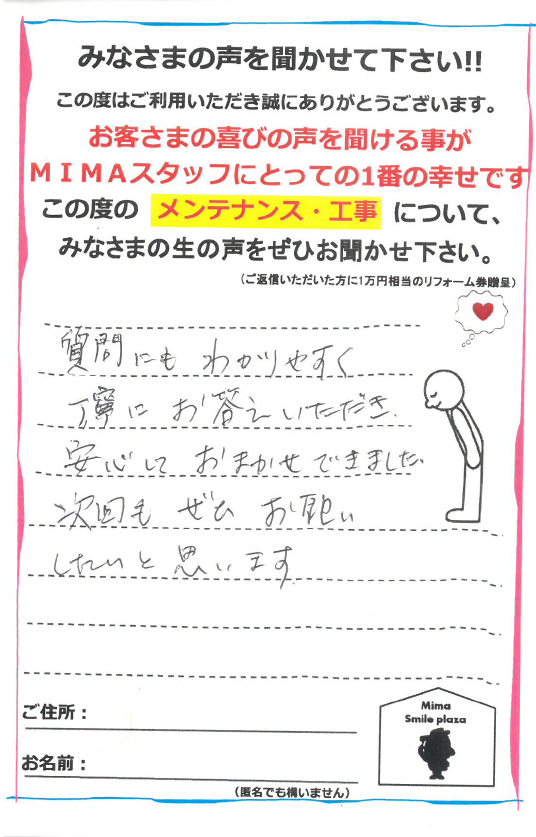 みなさまの声を聞かせて下さい!!
この度はご利用いただき誠にありがとうございます。
お客さまの喜びの声を聞ける事が
MIMAスタッフにとっての1番の幸せです
この度の メンテナンス・工事 について、
みなさまの生の声をぜひお聞かせ下さい。
(ご返信いただいた方に1万円相当のリフォーム券贈呈)
質問にも わかりやすく
丁寧に お答えいただき、
安心して おまかせできました。
次回も ぜひ お願い
したいと思います
ご住所：
お名前：
(匿名でも構いません)
Mima
Smile plaza